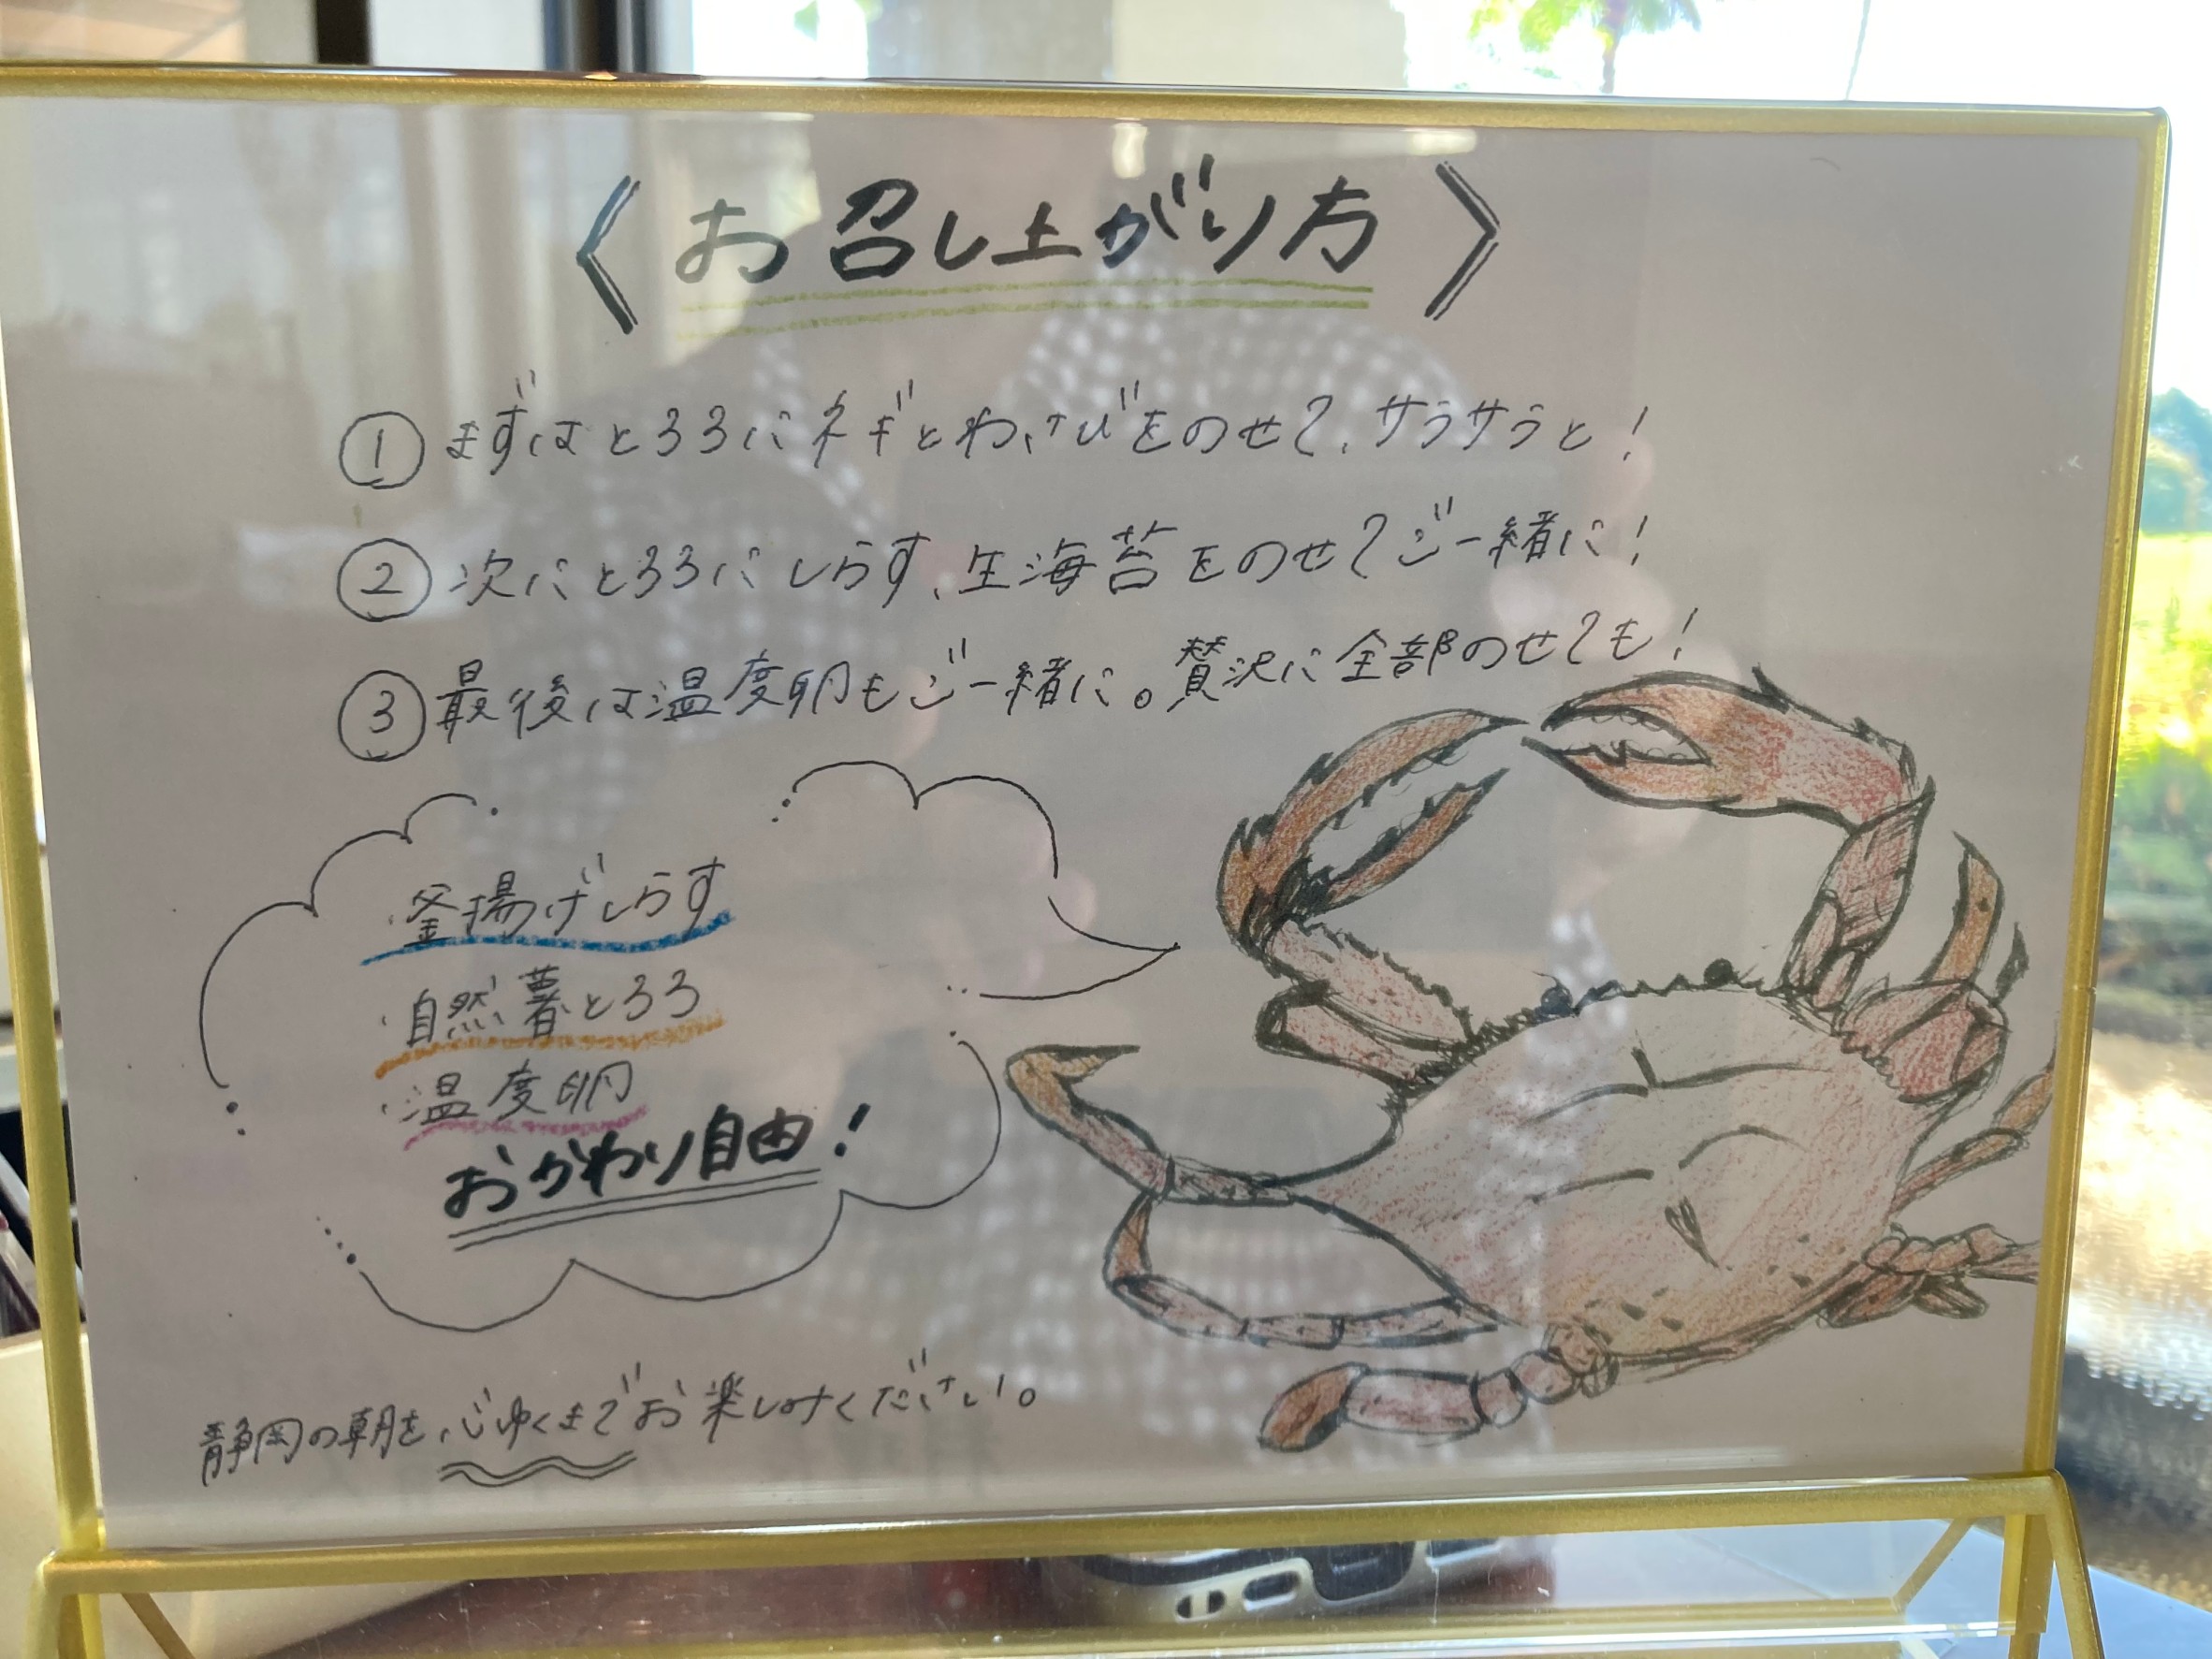 《お召し上がり方》
①まずはとろろにネギとわさびをのせて、サラサラと！
②次にとろろにしらす、生海苔をのせてご一緒に！
③最後は温度卵もご一緒に。贅沢に全部のせても！
・釜揚げしらす
・自然薯とろろ
・温度卵
おかわり自由！
静岡の朝を、心ゆくまでお楽しみください。